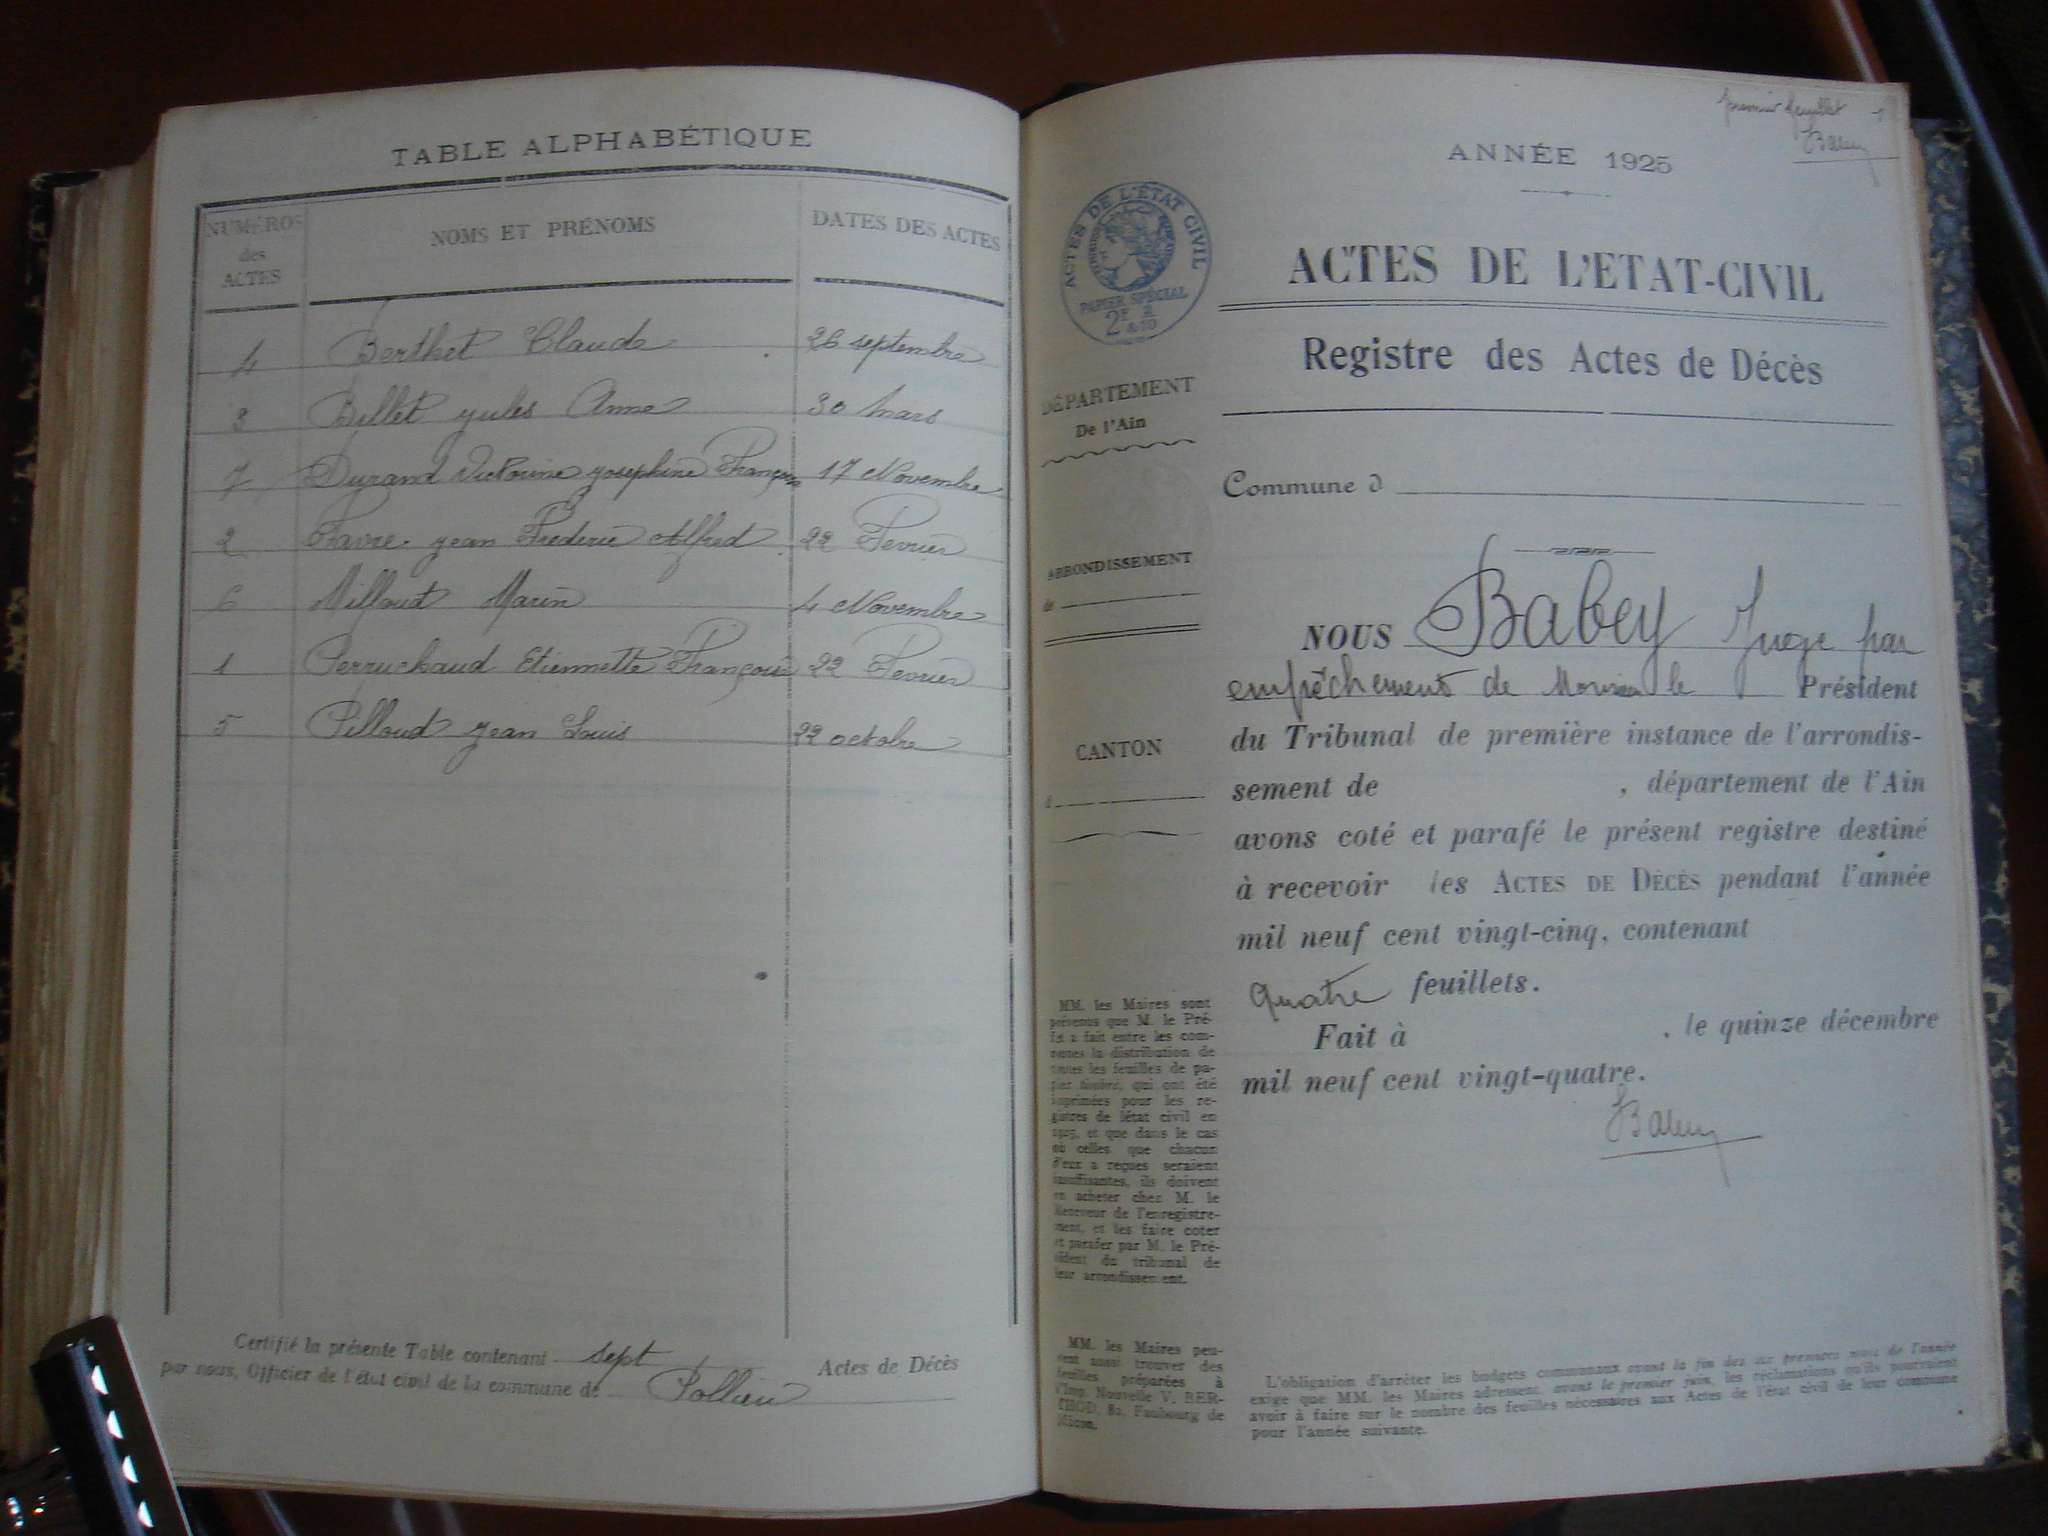 TABLE ALPHABÉTIQUE
NUMÉROS des ACTES
NOMS ET PRÉNOMS
DATES DES ACTES
4 Berthet Claude 26 septembre
3 Billet jules Anne 30 Mars
7 Durand Victorine josephine 17 Novembre
2 Favre jean Frederic Alfred 22 Fevrier
6 Millaud Marin 4 Novembre
1 Perruchaud Etiennette 22 Fevrier
5 Pilloud jean Louis 22 octobre
Certifié la présente Table contenant sept Actes de Décès
par nous, Officier de l'état civil de la commune de Pollieu
premier feuillet 1
Babey
ANNÉE 1925
ACTES DE L'ÉTAT CIVIL
PAPIER SPÉCIAL
ACTES DE L'ETAT-CIVIL
Registre des Actes de Décès
DÉPARTEMENT
De l'Ain
Commune d
ARRONDISSEMENT
de
CANTON
d
NOUS Babey Juge par
empêchement de Monsieur le Président
du Tribunal de première instance de l'arrondis-
sement de , département de l'Ain
avons coté et parafé le présent registre destiné
à recevoir les ACTES DE DÉCÈS pendant l'année
mil neuf cent vingt-cinq, contenant
quatre feuillets.
Fait à , le quinze décembre
mil neuf cent vingt-quatre.
Babey
MM. les Maires sont
prévenus que M. le Pré-
fet a fait entre les com-
munes la distribution de
toutes les feuilles de pa-
pier timbré, qui ont été
imprimées pour les re-
gistres de l'état civil en
1925, et que dans le cas
où celles que chacun
d'eux a reçues seraient
insuffisantes, ils doivent
en acheter chez M. le
Receveur de l'enregistre-
ment, et les faire coter
et parafer par M. le Pré-
sident du tribunal de
leur arrondissement.
MM. les Maires peu-
vent aussi trouver des
feuilles préparées à
l'Imp. Nouvelle V. BER-
THOD, 82, Faubourg de
Mâcon.
L'obligation d'arrêter les budgets communaux avant la fin des six premiers mois de l'année
exige que MM. les Maires adressent, avant le premier juin, les réclamations qu'ils pourraient
avoir à faire sur le nombre des feuilles nécessaires aux Actes de l'état civil de leur commune
pour l'année suivante.